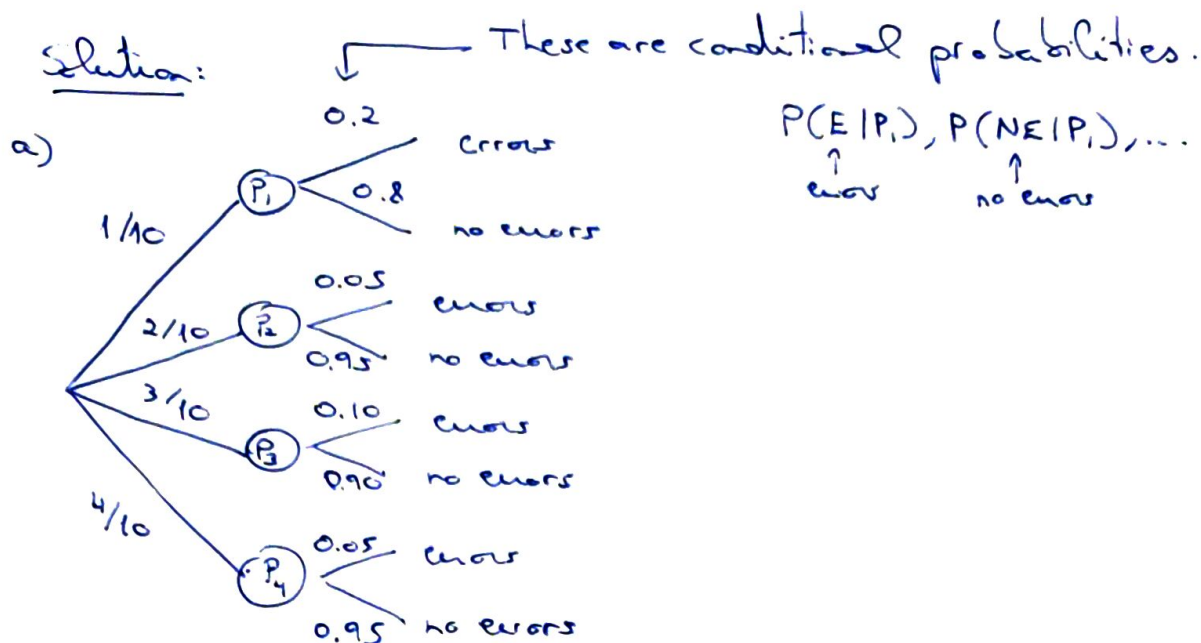 Solution:
These are conditional probabilities.
P(E|P₁), P(NE|P₁),...
errors
no errors
a)
0.2
errors
P₁
0.8
no errors
1/10
0.05
errors
2/10
P₂
0.95
no errors
3/10
0.10
errors
P₃
0.90
no errors
4/10
0.05
errors
P₄
0.95
no errors